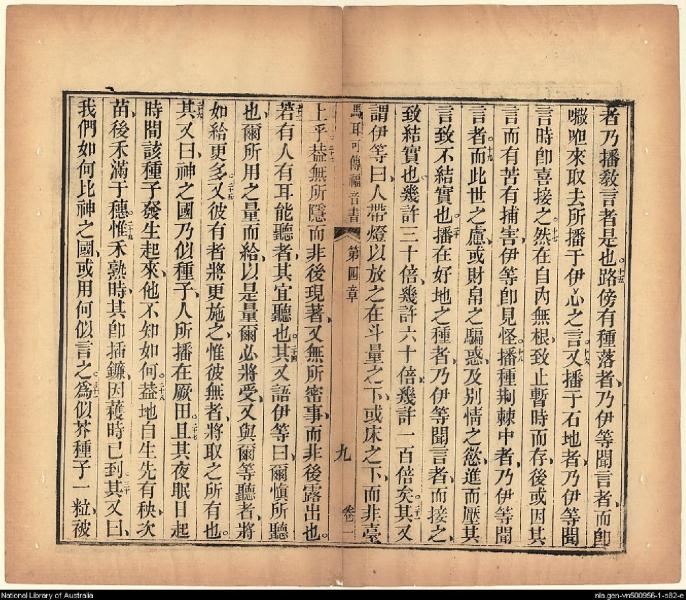 者乃播敎言者是也路傍有種落者乃伊等聞言者而卽
㘔咀來取去所播于伊心之言又播于石地者乃伊等聞
言時卽喜接之然在自內無根致止暫時而存後或因其
言而有苦有捕害伊等卽見怪播種荊棘中者乃伊等聞
言者而此世之慮或財帛之騙惑及別情之慾進而壓其
言致不結實也播在好地之種者乃伊等聞言者而接之
致結實也幾許三十倍幾許六十倍幾許一百倍矣其又
謂伊等曰人帶燈以放之在斗量之下或床之下而非臺
馬耳可傳福音書 第四章 九 卷一
上乎葢無所隱而非後現著又無所密事而非後露出也
若有人有耳能聽者其宜聽也其又語伊等曰爾愼所聽
也爾所用之量而給以是量爾必將受又與爾等聽者將
如給更多又彼有者將更施之惟彼無者將取之所有也
其又曰神之國乃似種子人所播在厥田且其夜眠日起
時間該種子發生起來他不知如何葢地自生先有秧次
苗後禾滿于穗惟禾熟時其卽插鐮因穫時已到其又曰
我們如何比神之國或用何似言之爲似芥種子一粒被
National Library of Australia
nla.gen-vn500956-1-s82-e